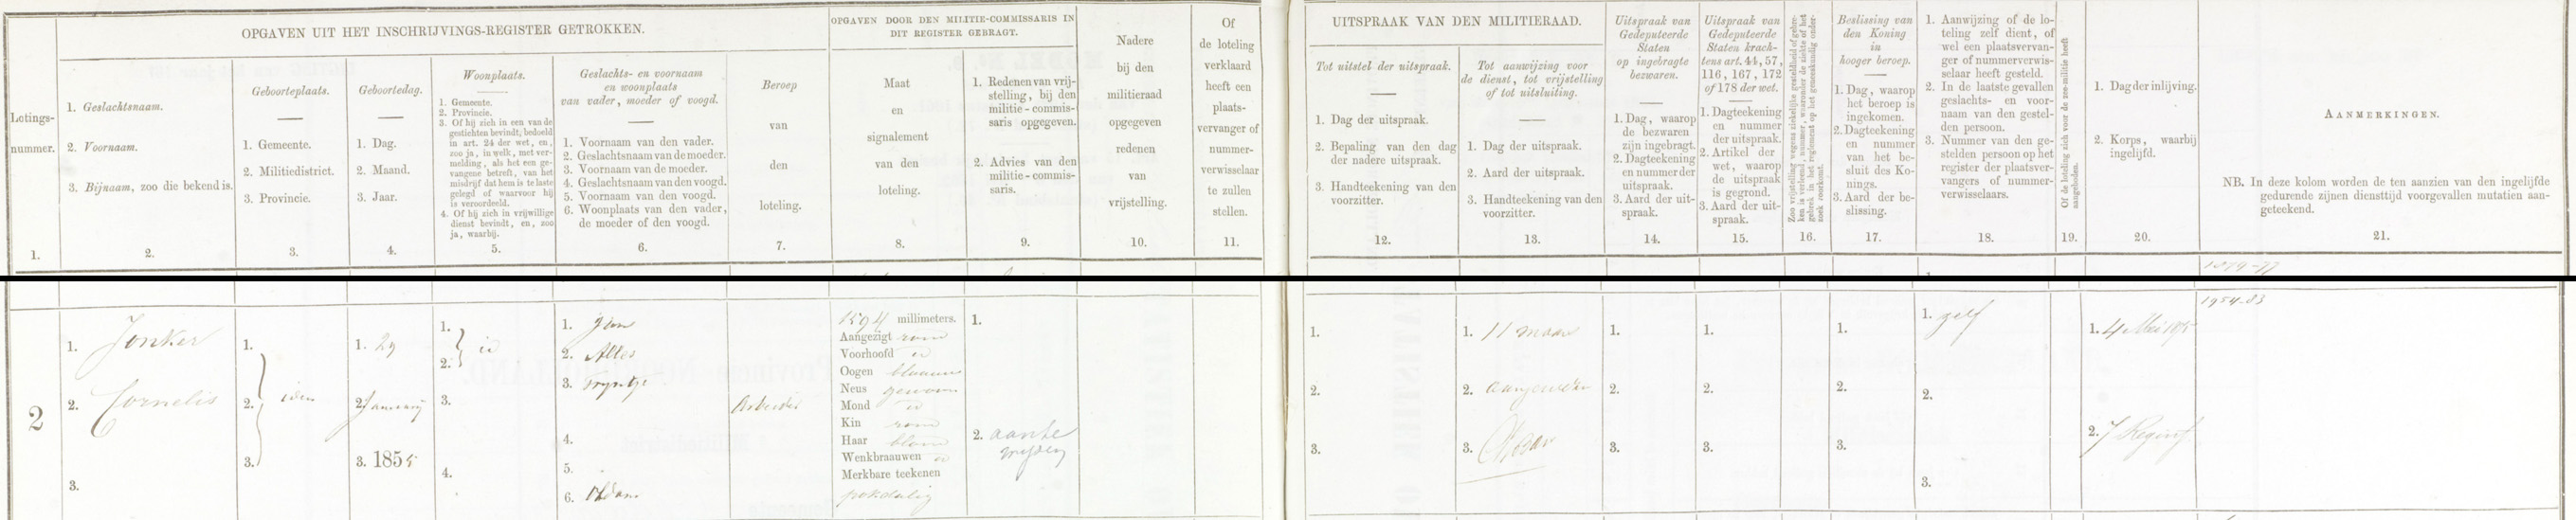 OPGAVEN UIT HET INSCHRIJVINGS-REGISTER GETROKKEN.
OPGAVEN DOOR DEN MILITIE-COMMISSARIS IN
DIT REGISTER GEBRAGT.
Lotings-
nummer.
1.
1. Geslachtsnaam.
2. Voornaam.
3. Bijnaam, zoo die bekend is.
2.
Geboorteplaats.
1. Gemeente.
2. Militiedistrict.
3. Provincie.
3.
Geboortedag.
1. Dag.
2. Maand.
3. Jaar.
4.
Woonplaats.
1. Gemeente.
2. Provincie.
3. Of hij zich in een van de
gestichten bevindt, bedoeld
in art. 24 der wet, en,
zoo ja, in welk, met ver-
melding, als het een ge-
vangene betreft, van het
misdrijf dat hem is te laste
gelegd of waarvoor hij
is veroordeeld.
4. Of hij zich in vrijwillige
dienst bevindt, en, zoo
ja, waarbij.
5.
Geslachts- en voornaam
en woonplaats
van vader, moeder of voogd.
1. Voornaam van den vader.
2. Geslachtsnaam van de moeder.
3. Voornaam van de moeder.
4. Geslachtsnaam van den voogd.
5. Voornaam van den voogd.
6. Woonplaats van den vader,
de moeder of den voogd.
6.
Beroep
van
den
loteling.
7.
Maat
en
signalement
van den
loteling.
8.
1. Redenen van vrij-
stelling, bij den
militie-commis-
saris opgegeven.
2. Advies van den
militie-commis-
saris.
9.
Nadere
bij den
militieraad
opgegeven
redenen
van
vrijstelling.
10.
Of
de loteling
verklaard
heeft een
plaats-
vervanger of
nummer-
verwisselaar
te zullen
stellen.
11.
UITSPRAAK VAN DEN MILITIERAAD.
Tot uitstel der uitspraak.
1. Dag der uitspraak.
2. Bepaling van den dag
der nadere uitspraak.
3. Handteekening van den
voorzitter.
12.
Tot aanwijzing voor
de dienst, tot vrijstelling
of tot uitsluiting.
1. Dag der uitspraak.
2. Aard der uitspraak.
3. Handteekening van den
voorzitter.
13.
Uitspraak van
Gedeputeerde
Staten
op ingebragte
bezwaren.
1. Dag, waarop
de bezwaren
zijn ingebragt.
2. Dagteekening
en nummer der
uitspraak.
3. Aard der uit-
spraak.
14.
Uitspraak van
Gedeputeerde
Staten krach-
tens art. 44, 57,
116, 167, 172
of 178 der wet.
1. Dagteekening
en nummer
der uitspraak.
2. Artikel der
wet, waarop
de uitspraak
is gegrond.
3. Aard der uit-
spraak.
15.
Zoo vrijstelling wegens ziekelijke gesteldheid of gebre-
ken is verleend, nummer, waaronder de ziekte of het
gebrek in het reglement op het geneeskundig onder-
zoek voorkomt.
16.
Beslissing van
den Koning
in
hooger beroep.
1. Dag, waarop
het beroep is
ingekomen.
2. Dagteekening
en nummer
van het be-
sluit des Ko-
nings.
3. Aard der be-
slissing.
17.
1. Aanwijzing of de lo-
teling zelf dient, of
wel een plaatsvervan-
ger of nummerverwis-
selaar heeft gesteld.
2. In de laatste gevallen
geslachts- en voor-
naam van den gestel-
den persoon.
3. Nummer van den ge-
stelden persoon op het
register der plaatsver-
vangers of nummer-
verwisselaars.
18.
Of de loteling zich voor de zee-militie heeft
aangeboden.
19.
1. Dag der inlijving.
2. Korps, waarbij
ingelijfd.
20.
AANMERKINGEN.
NB. In deze kolom worden de ten aanzien van den ingelijfde
gedurende zijnen diensttijd voorgevallen mutatien aan-
geteekend.
21.
2
1. Jonker
2. Cornelis
3.
1.
2. idem
3.
1. 29
2. January
3. 1855
1.
2. id
3.
4.
1. Jan
2. Alles
3. Tryntje
4.
5.
6. Obdam
Arbeider
1594 millimeters.
Aangezigt rond
Voorhoofd id
Oogen blaauw
Neus gewoon
Mond id
Kin rond
Haar blond
Wenkbraauwen id
Merkbare teekenen
pokdalig
1.
2. aante
wijzen
1.
2.
3.
1. 11 maart
2. aangewezen
3.
1.
2.
3.
1.
2.
3.
1.
2.
3.
1. zelf
2.
3.
1. 4 Mei 1875
2. 7 Reginf
1954-83